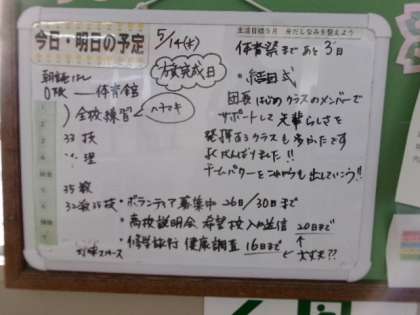 今日・明日の予定
5/14(水)
生活目標5月 身だしなみを整えよう
体育祭まであと3日
旗完成日
朝読なし
0校 — 体育館
1
2
全校練習
ハチマキ
・結団式
団長はじめクラスのメンバーで
サポートして先輩らしさを
発揮するクラスも多かったです
よくがんばりました!!
チームパワーをこれからも出していこう!!
3
33技
4
〃理
5
35数
6
32数 35技
・ボランティア募集中 26日/30日まで
・高校説明会 希望校入力送信 20日まで
・修学旅行 健康調査 16日まで
大丈夫??